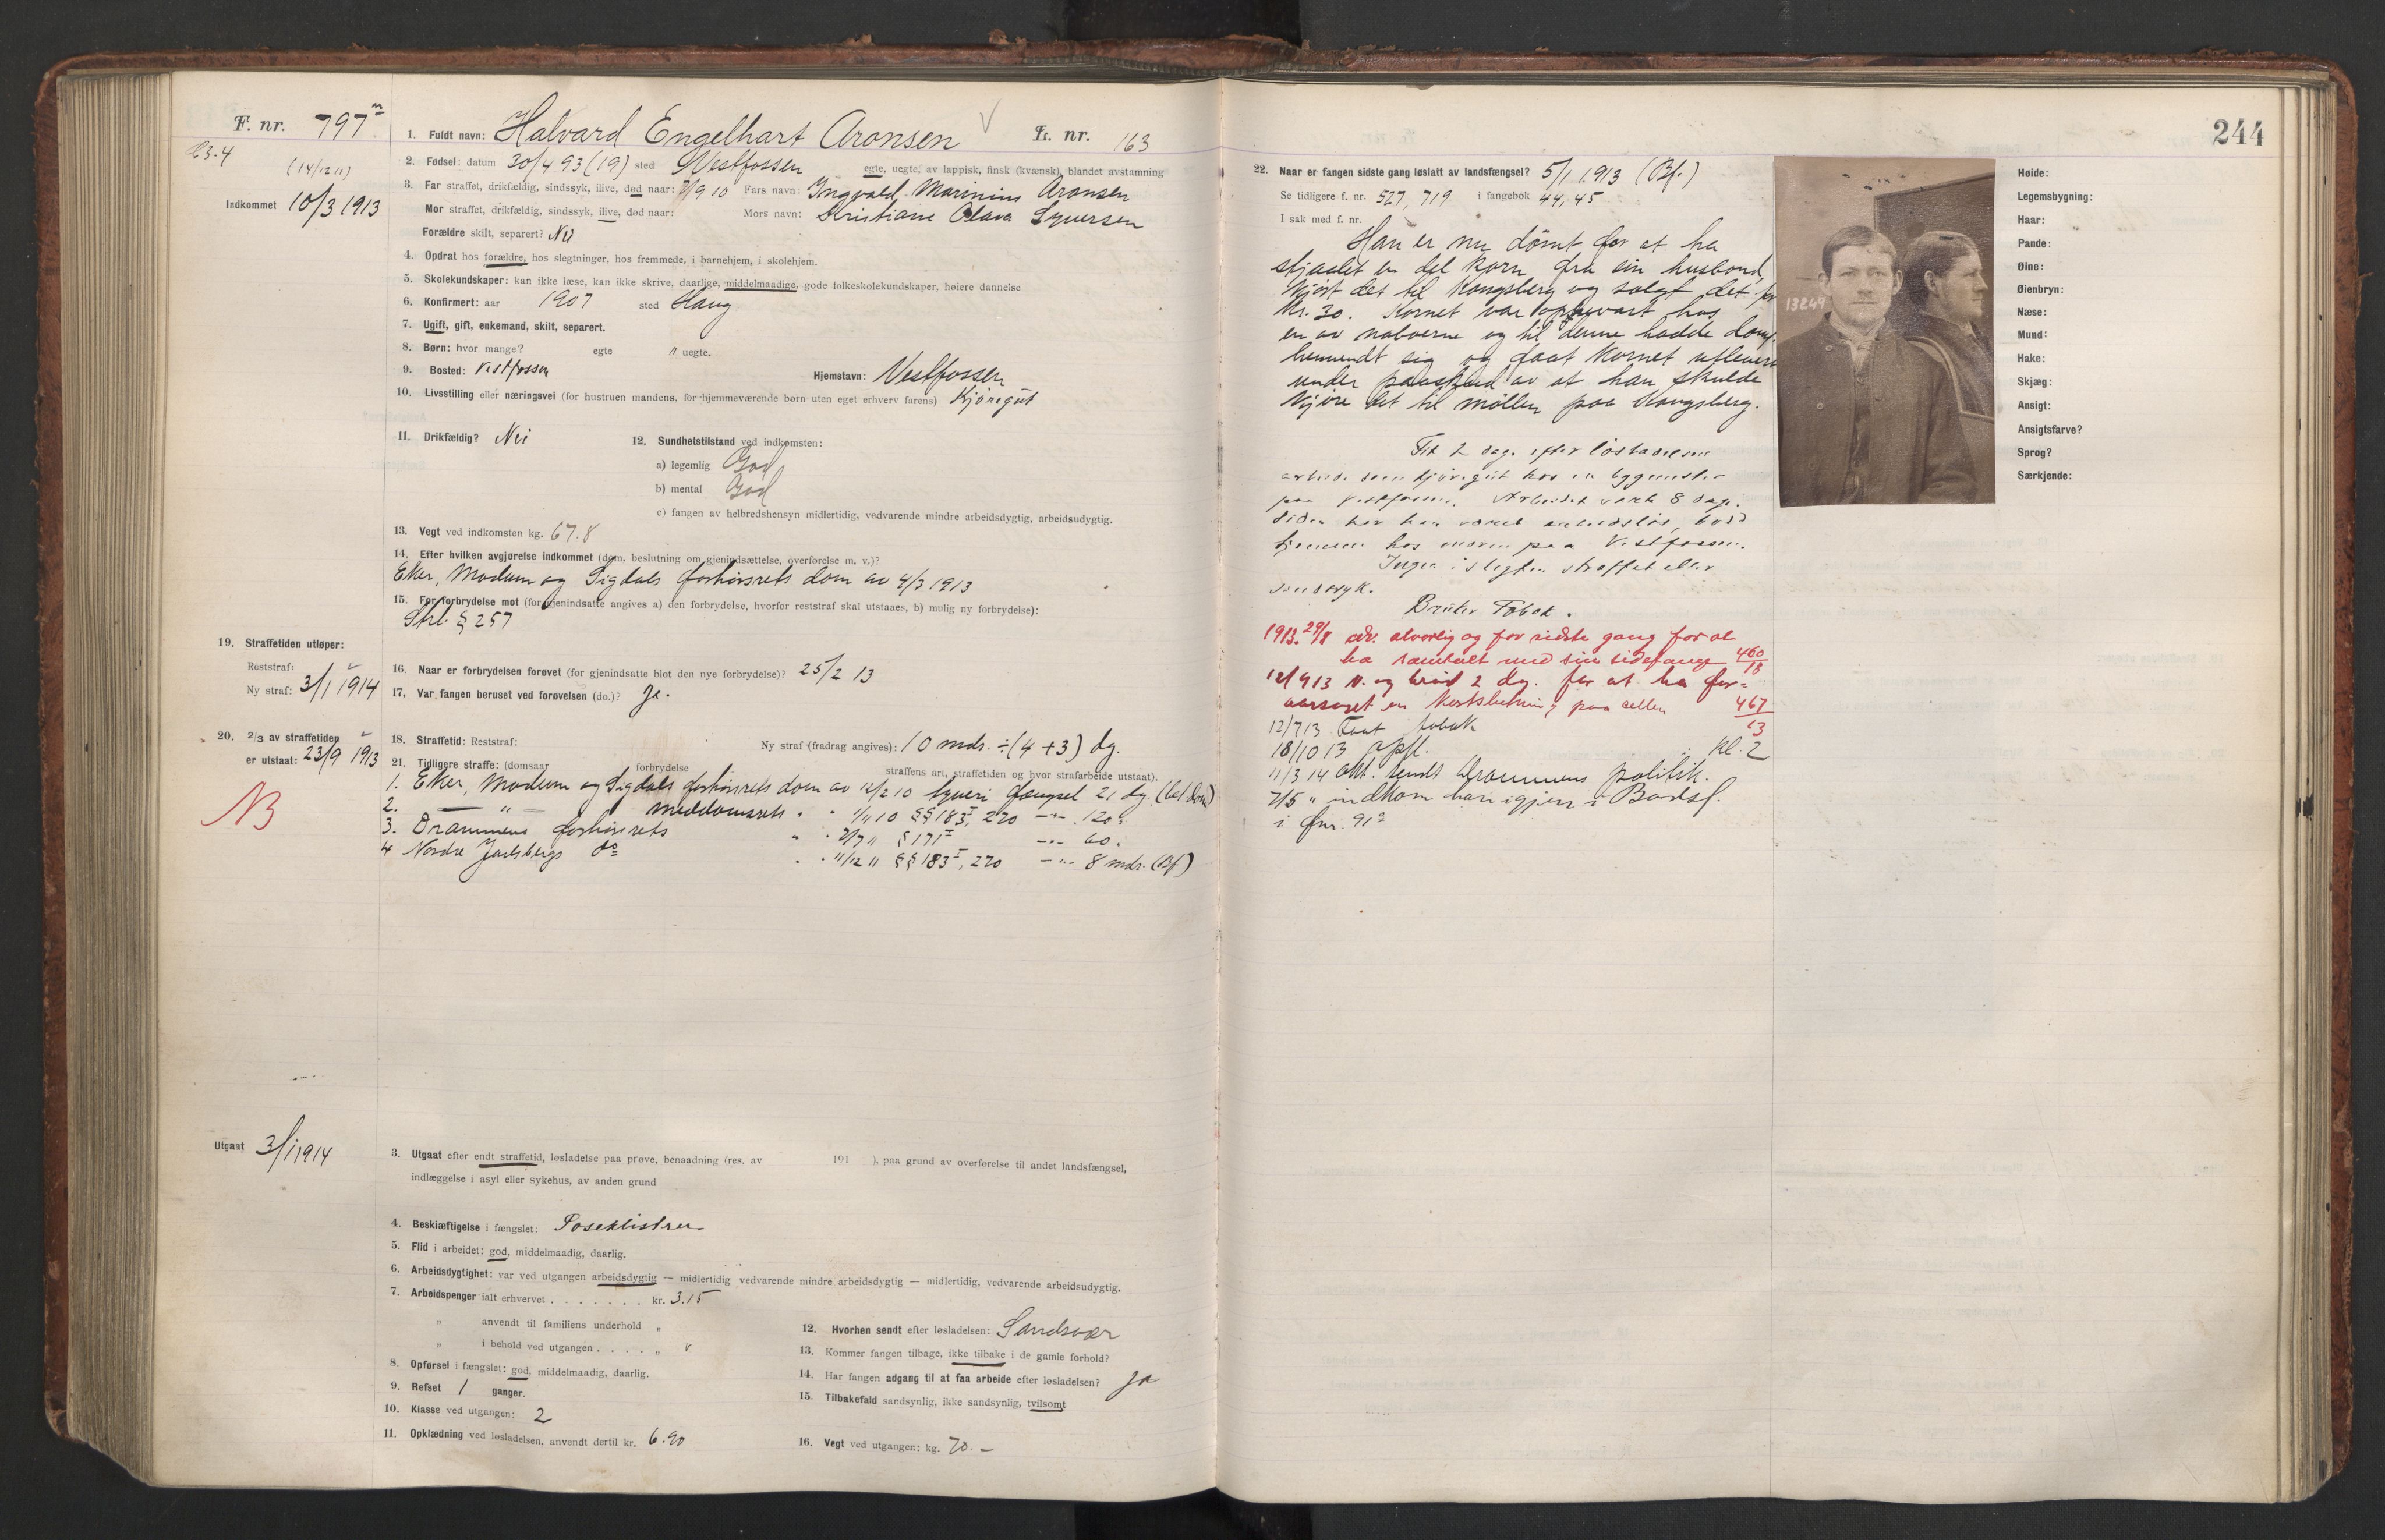 F. nr. 797
1. Fuldt navn: Halvard Engelhart Aronsen
L. nr. 163
244
(14/12 11)
Indkommet 10/3 1913
2. Fødsel: datum 30/4 93 (19) sted Vestfossen egte, uegte, av lappisk, finsk (kvænsk), blandet avstamning
3. Far straffet, drikfældig, sindssyk, ilive, død naar: 7/9 10 Fars navn: Ingvald Marinius Aronsen
Mor straffet, drikfældig, sindssyk, ilive, død naar: Mors navn: Kristiane Olava Syversen
Forældre skilt, separert? Nei
4. Opdrat hos forældre, hos slegtninger, hos fremmede, i barnehjem, i skolehjem.
5. Skolekundskaper: kan ikke læse, kan ikke skrive, daarlige, middelmaadige, gode folkeskolekundskaper, høiere dannelse
6. Konfirmert: aar 1907 sted Haug
7. Ugift, gift, enkemand, skilt, separert.
8. Børn: hvor mange? egte " uegte.
9. Bosted: Vestfossen Hjemstavn: Vestfossen
10. Livsstilling eller næringsvei (for hustruen mandens, for hjemmeværende børn uten eget erhverv farens) Kjøregut
11. Drikfældig? Nei
12. Sundhetstilstand ved indkomsten:
a) legemlig God
b) mental God
c) fangen av helbredshensyn midlertidig, vedvarende mindre arbeidsdygtig, arbeidsudygtig.
13. Vegt ved indkomsten kg. 67.8
14. Efter hvilken avgjørelse indkommet (dom, beslutning om gjenindsættelse, overførelse m. v.)?
Eker, Modum og Sigdals forhørsrets dom av 4/3 1913
15. For forbrydelse mot (for gjenindsatte angives a) den forbrydelse, hvorfor reststraf skal utstaaes, b) mulig ny forbrydelse):
Strl. § 257
19. Straffetiden utløper:
Reststraf:
Ny straf: 3/1 1914
16. Naar er forbrydelsen forøvet (for gjenindsatte blot den nye forbrydelse)? 25/2 13
17. Var fangen beruset ved forøvelsen (do.)? Ja.
20. 2/3 av straffetiden
er utstaat: 23/9 1913
NB
18. Straffetid: Reststraf: Ny straf (fradrag angives): 10 mdr. ÷ (4 + 3) dg.
21. Tidligere straffe: (domsaar forbrydelse straffens art, straffetiden og hvor strafarbeide utstaat).
1. Eker, Modum og Sigdals forhørsrets dom av 12/2 10 tyveri fængsel 21 dg. (bet. dom)
2. — " — meddomsrets " " 1/11 10 §§ 183 I, 220 —"— 120 "
3. Drammens forhørsrets " " 7/7 11 § 171 I —"— 60 "
4 Nordre Jarlsbergs do " " 11/12 11 §§ 183 I, 220 —"— 8 mdr. (Bf)
Utgaat 3/1 1914
3. Utgaat efter endt straffetid, løsladelse paa prøve, benaadning (res. av 191 ), paa grund av overførelse til andet landsfængsel,
indlæggelse i asyl eller sykehus, av anden grund
4. Beskjæftigelse i fængslet: Poseklistrer
5. Flid i arbeidet: god, middelmaadig, daarlig.
6. Arbeidsdygtighet: var ved utgangen arbeidsdygtig — midlertidig vedvarende mindre arbeidsdygtig — midlertidig, vedvarende arbeidsudygtig.
7. Arbeidspenger ialt erhvervet . . . . . . . kr. 3.15
" anvendt til familiens underhold "
" i behold ved utgangen . . . . "
8. Opførsel i fængslet: god, middelmaadig, daarlig.
9. Refset 1 ganger.
10. Klasse ved utgangen: 2
11. Opklædning ved løsladelsen, anvendt dertil kr. 6.90
12. Hvorhen sendt efter løsladelsen: Sandsvær
13. Kommer fangen tilbage, ikke tilbake i de gamle forhold?
14. Har fangen adgang til at faa arbeide efter løsladelsen? Ja
15. Tilbakefald sandsynlig, ikke sandsynlig, tvilsomt
16. Vegt ved utgangen: kg. 70.-
22. Naar er fangen sidste gang løslatt av landsfængsel? 5/1 1913 (Bf.)
Se tidligere f. nr. 527, 719 i fangebok 44, 45
I sak med f. nr.
Han er nu dømt for at ha
stjaalet en del korn fra sin husbond,
kjørt det til Kongsberg og solgt det for
kr. 30. Kornet var opbevart hos
en av naboerne og til denne hadde domf.
henvendt sig og faat kornet utlevert
under paaskud av at han skulde
kjøre det til møllen paa Kongsberg.
Fik 2 dage efter løsladelsen
arbeide som kjøregut hos en byggmester
paa Vestfossen. Arbeidet varte 8 dage.
Siden har han været arbeidsløs, bodd
hjemme hos moren paa Vestfossen.
Ingen i slegten straffet eller
sindssyk.
Bruker Tobak.
1913. 29/8 adv. alvorlig og for sidste gang for at
ha samtalt med sin sidefange 460/18
12/9 13 V. og brød 2 dg. for at ha for=
aarsaget en kortslutning paa cellen 467/13
12/7 13 Faat tobak
18/10 13 opfl. kl. 2
11/3 14 Akt. sendt Drammens politik.
7/5 " indkom han igjen i Bodsf.
i fnr. 91
13249
Høide:
Legemsbygning:
Haar:
Pande:
Øine:
Øienbryn:
Næse:
Mund:
Hake:
Skjæg:
Ansigt:
Ansigtsfarve?
Sprog?
Særkjende: